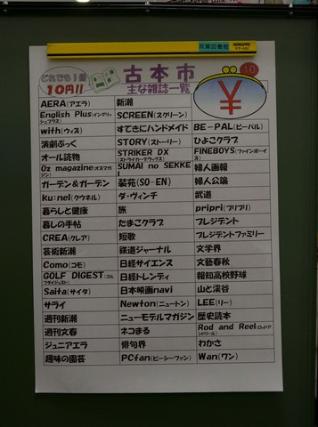 どれでも1冊
10円!!
古本市
主な雑誌一覧
10
¥
AERA(アエラ) 新潮
English Plus(イングリッシュプラス) SCREEN(スクリーン)
with(ウィズ) すてきにハンドメイド BE-PAL(ビーパル)
演劇ぶっく STORY(ストーリー) ひよこクラブ
オール読物 STRIKER DX(ストライカーデラックス) FINEBOYS(ファインボーイズ)
Oz magazine(オズマガジン) SUMAI no SEKKEI 婦人画報
ガーデン&ガーデン 装苑(SO-EN) 婦人公論
ku:nel(クウネル) ダ・ヴィンチ 武道
暮らしと健康 旅 pripri(プリプリ)
暮しの手帖 たまごクラブ プレジデント
CREA(クレア) 短歌 プレジデントファミリー
芸術新潮 鉄道ジャーナル 文学界
Como(コモ) 日経サイエンス 文藝春秋
GOLF DIGEST(ゴルフダイジェスト) 日経トレンディ 報知高校野球
Saita(サイタ) 日本映画navi 山と渓谷
サライ Newton(ニュートン) LEE(リー)
週刊新潮 ニューモデルマガジン 歴史読本
週刊文春 ネコまる Rod and Reel(ロッドアンドリール)
ジュニアエラ 俳句界 わかさ
趣味の園芸 PCfan(ピーシーファン) Wan(ワン)